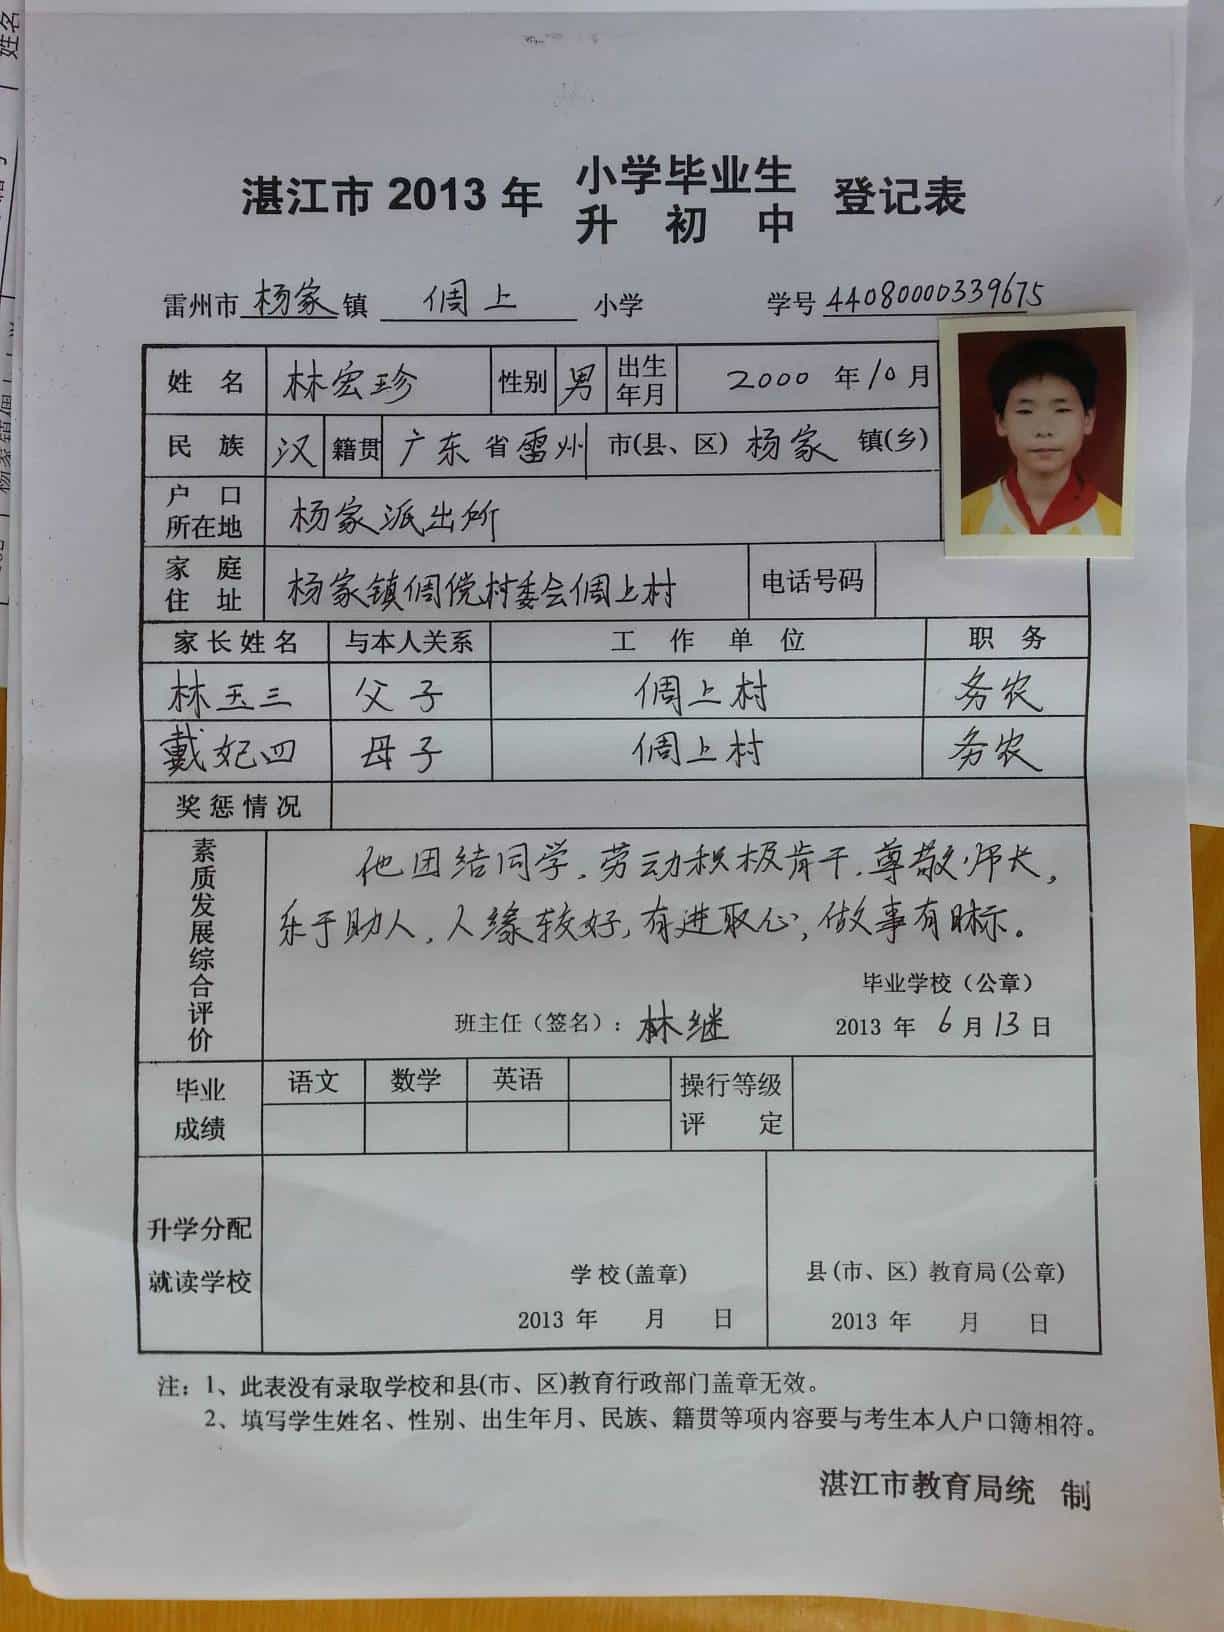 湛江市 2013 年 小学毕业生 登记表
升 初 中
雷州市 杨家 镇 倜上 小学 学号 44080000339675
姓 名 林宏珍 性别 男 出生年月 2000 年 10 月
民 族 汉 籍贯 广东 省 雷州 市(县、区) 杨家 镇(乡)
户 口 所在地 杨家派出所
家 庭 住 址 杨家镇倜傥村委会倜上村 电话号码
家长姓名 与本人关系 工 作 单 位 职 务
林玉三 父子 倜上村 务农
戴妃四 母子 倜上村 务农
奖惩情况
素质发展综合评价
他团结同学，劳动积极肯干，尊敬师长，
乐于助人，人缘较好，有进取心，做事有目标。
毕业学校（公章）
班主任（签名）：林继 2013 年 6 月 13 日
毕业成绩 语文 数学 英语 操行等级评 定
升学分配
就读学校
学校(盖章) 县(市、区) 教育局(公章)
2013 年 月 日 2013 年 月 日
注：1、此表没有录取学校和县(市、区)教育行政部门盖章无效。
2、填写学生姓名、性别、出生年月、民族、籍贯等项内容要与考生本人户口簿相符。
湛江市教育局统 制